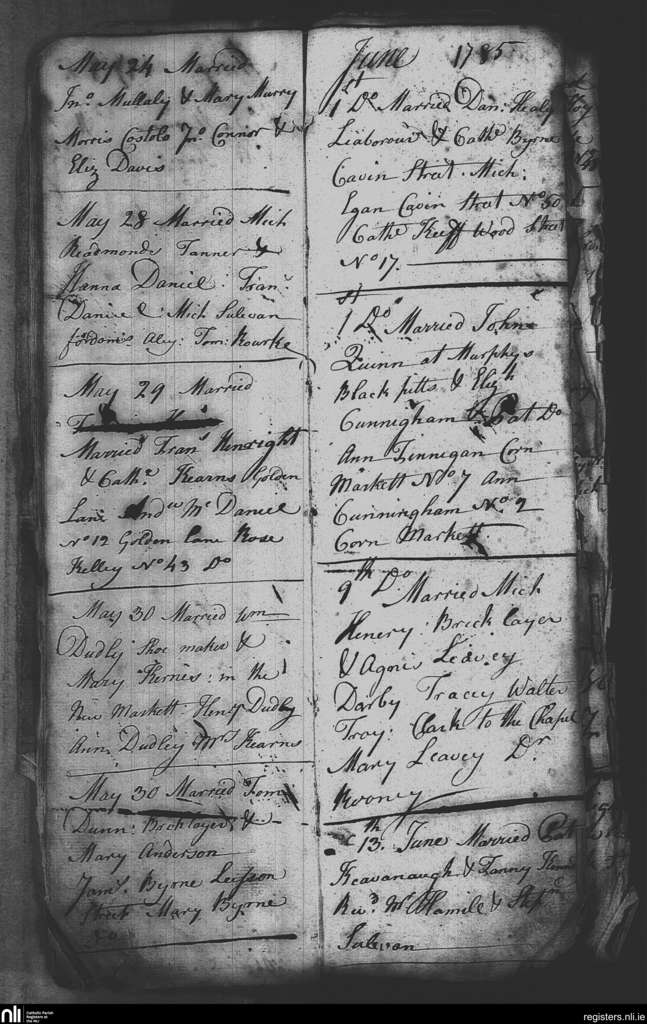 May 24 Married
Jno. Mullaly & Mary Murry
Morris Costolo Jno. Connor &
Eliz Davis
May 28 Married Mich
Readmonds Tanner &
Hanna Daniel: Fran.
Daniel: Mich Sulevan
Jordoms Aley: Tom: Rourke
May 29 Married
Married Frans Henright
& Cathe. Kearns Golden
Lane Andw Mc Daniel
No 12 Golden Lane Rose
Kelley No 43 Do
May 30 Married Wm
Dudley Shoe maker &
Mary Kernes: in the
New Markett Heny Dudley
Ann Dudley Mrs Kearns
May 30 Married Tom
Dunn: Bricklayer &
Mary Anderson
Jams. Byrne Leison
Street Mary Byrne
June 1785
1st Do Married Dan: Healy
Liaborour & Cathe Byrne
Cavin Street. Mich:
Egan Cavin Street No 50
Cathe Keeff Wood Street
No 17.
1st Do Married John
Quinn at Murphys
Black pitts & Elizh
Cunnigham & Pat Do
Ann Finnigan Corn
Markett No 7 Ann
Cunningham No. 2
Corn Markett
9th Do Married Mich
Henery: Brick layer
& Agnes Leavey
Darby Tracey Walter
Troy: Clark to the Chapel
Mary Leavey Dr.
Rooney
13th. June Married Pat
Keavanaugh & Fanny
Revd. Mr Hamile & Stephn
Sulevan
nli
Catholic Parish
Registers at
the NLI
registers.nli.ie